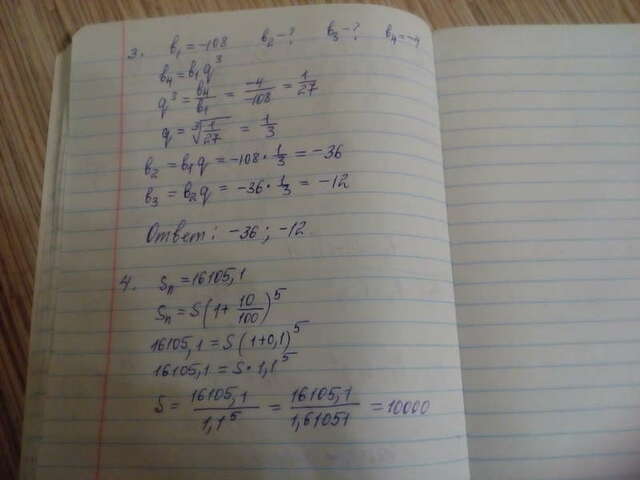 3. b₁ = -108 b₂ - ? b₃ - ? b₄ = -4
b₄ = b₁q³
q³ = b₄/b₁ = -4/-108 = 1/27
q = ∛(1/27) = 1/3
b₂ = b₁q = -108 · 1/3 = -36
b₃ = b₂q = -36 · 1/3 = -12
Ответ: -36; -12
4. Sₙ = 16105,1
Sₙ = S(1 + 10/100)⁵
16105,1 = S(1+0,1)⁵
16105,1 = S · 1,1⁵
S = 16105,1/1,1⁵ = 16105,1/1,61051 = 10000